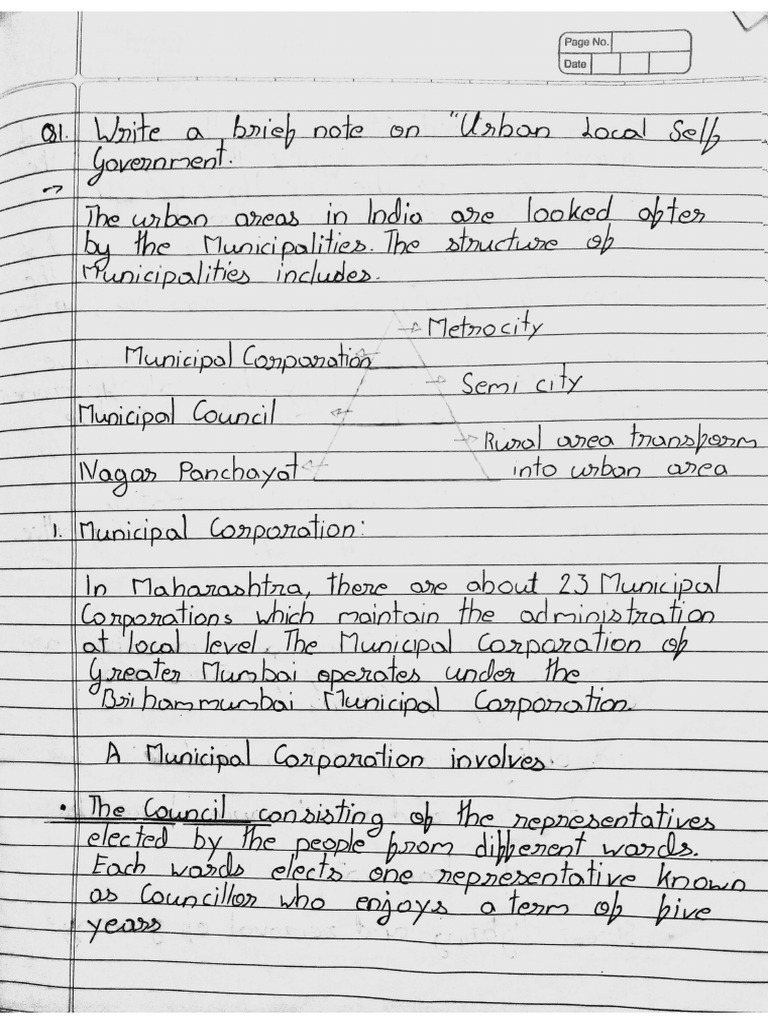 Page No.
Date
Q1. Write a brief note on "Urban Local Self
Government.
→
The urban areas in India are looked after
by the Municipalities. The structure of
Municipalities includes.
→ Metrocity
Municipal Corporation ←
→ Semi city
Municipal Council ←
→ Rural area transform
Nagar Panchayat ← into urban area
1. Municipal Corporation:
In Maharashtra, there are about 23 Municipal
Corporations which maintain the administration
at local level. The Municipal Corporation of
Greater Mumbai operates under the
Brihammumbai Municipal Corporation.
A Municipal Corporation involves.
• The Council consisting of the representatives
elected by the people from different words.
Each words elects one representative known
as Councillor who enjoys a term of five
years